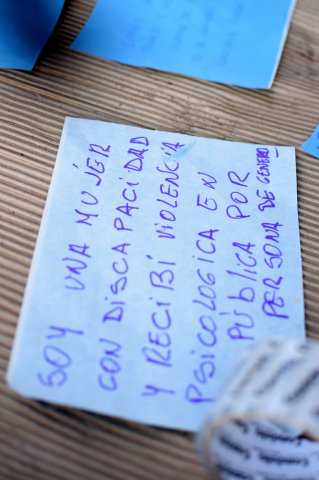 SOY UNA MUJÉR
CON DISCAPACIDAD
Y RECIBÍ VIOLENCIA
PSICOLOGICA EN
PUBLICA POR
PERSONA DE GENERO